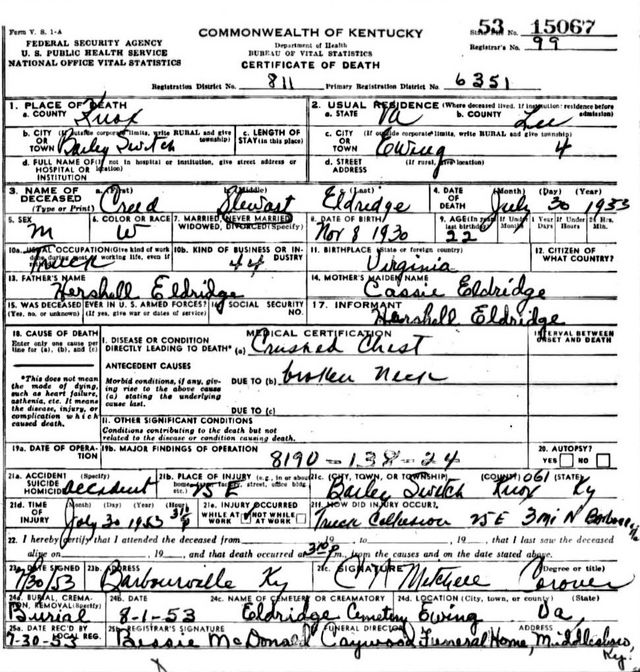 Form V. S. 1-A
COMMONWEALTH OF KENTUCKY
53 No. 15067
FEDERAL SECURITY AGENCY
U. S. PUBLIC HEALTH SERVICE
NATIONAL OFFICE VITAL STATISTICS
Department of Health
BUREAU OF VITAL STATISTICS
CERTIFICATE OF DEATH
Registrar's No. 99
Registration District No. 811 Primary Registration District No. 6351
1. PLACE OF DEATH
a. COUNTY Knox
2. USUAL RESIDENCE (Where deceased lived. If institution: residence before admission)
a. STATE Va b. COUNTY Lee
b. CITY (If outside corporate limits, write RURAL and give township)
OR TOWN Bailey Switch
c. LENGTH OF STAY (in this place)
c. CITY (If outside corporate limits, write RURAL and give township)
OR TOWN Ewing 4
d. FULL NAME OF (If not in hospital or institution, give street address or location)
HOSPITAL OR INSTITUTION
d. STREET ADDRESS (If rural, give location)
3. NAME OF DECEASED (Type or Print)
a. (First) Creed (Middle) Stewart (Last) Eldridge
4. DATE OF DEATH (Month) (Day) (Year) July 30 1953
5. SEX M
6. COLOR OR RACE W
7. MARRIED, NEVER MARRIED, WIDOWED, DIVORCED (Specify)
8. DATE OF BIRTH Nov 8 1930
9. AGE (In years last birthday) 22
If Under 1 Year Months Days
If Under 24 Hrs. Hours Min.
10a. USUAL OCCUPATION (Give kind of work done during most of working life, even if
10b. KIND OF BUSINESS OR INDUSTRY 44
11. BIRTHPLACE (State or foreign country) Virginia
12. CITIZEN OF WHAT COUNTRY?
13. FATHER'S NAME Hershell Eldridge
14. MOTHER'S MAIDEN NAME Cassie Eldridge
15. WAS DECEASED EVER IN U. S. ARMED FORCES?
(Yes, no, or unknown) (If yes, give war or dates of service)
16. SOCIAL SECURITY NO.
17. INFORMANT Hershell Eldridge
18. CAUSE OF DEATH
Enter only one cause per line for (a), (b), and (c)
MEDICAL CERTIFICATION
INTERVAL BETWEEN ONSET AND DEATH
I. DISEASE OR CONDITION DIRECTLY LEADING TO DEATH* (a) Crushed Chest
*This does not mean the mode of dying, such as heart failure, asthenia, etc. It means the disease, injury, or complication which caused death.
ANTECEDENT CAUSES
Morbid conditions, if any, giving rise to the above cause (a) stating the underlying cause last.
DUE TO (b) broken neck
DUE TO (c)
II. OTHER SIGNIFICANT CONDITIONS
Conditions contributing to the death but not related to the disease or condition causing death.
19a. DATE OF OPERATION
19b. MAJOR FINDINGS OF OPERATION
8190-138-24
20. AUTOPSY? YES NO
21a. ACCIDENT SUICIDE HOMICIDE (Specify) accident
21b. PLACE OF INJURY (e.g., in or about home, farm, factory, street, office bldg., etc.) 25 E
21c. (CITY, TOWN, OR TOWNSHIP) (COUNTY) (STATE)
Bailey Switch Knox 061 Ky
21d. TIME OF INJURY (Month) (Day) (Year) (Hour) July 30 1953
21e. INJURY OCCURRED WHILE AT WORK NOT WHILE AT WORK
21f. HOW DID INJURY OCCUR?
Truck Collision 25 E 3 mi N
22. I hereby certify that I attended the deceased from , 19 , to , 19 , that I last saw the deceased
alive on , 19 , and that death occurred at m., from the causes and on the date stated above.
23a. DATE SIGNED 7/30/53
23b. ADDRESS Barbourville Ky
23c. SIGNATURE (Degree or title)
Mitchell Coroner
24a. BURIAL, CREMATION, REMOVAL (Specify) Burial
24b. DATE 8-1-53
24c. NAME OF CEMETERY OR CREMATORY Eldridge Cemetery
24d. LOCATION (City, town, or county) (State) Ewing Va,
25a. DATE REC'D BY LOCAL REG. 7-30-53
25b. REGISTRAR'S SIGNATURE Bessie McDonald
FUNERAL DIRECTOR ADDRESS
Caywood Funeral Home, Middlesboro Ky.